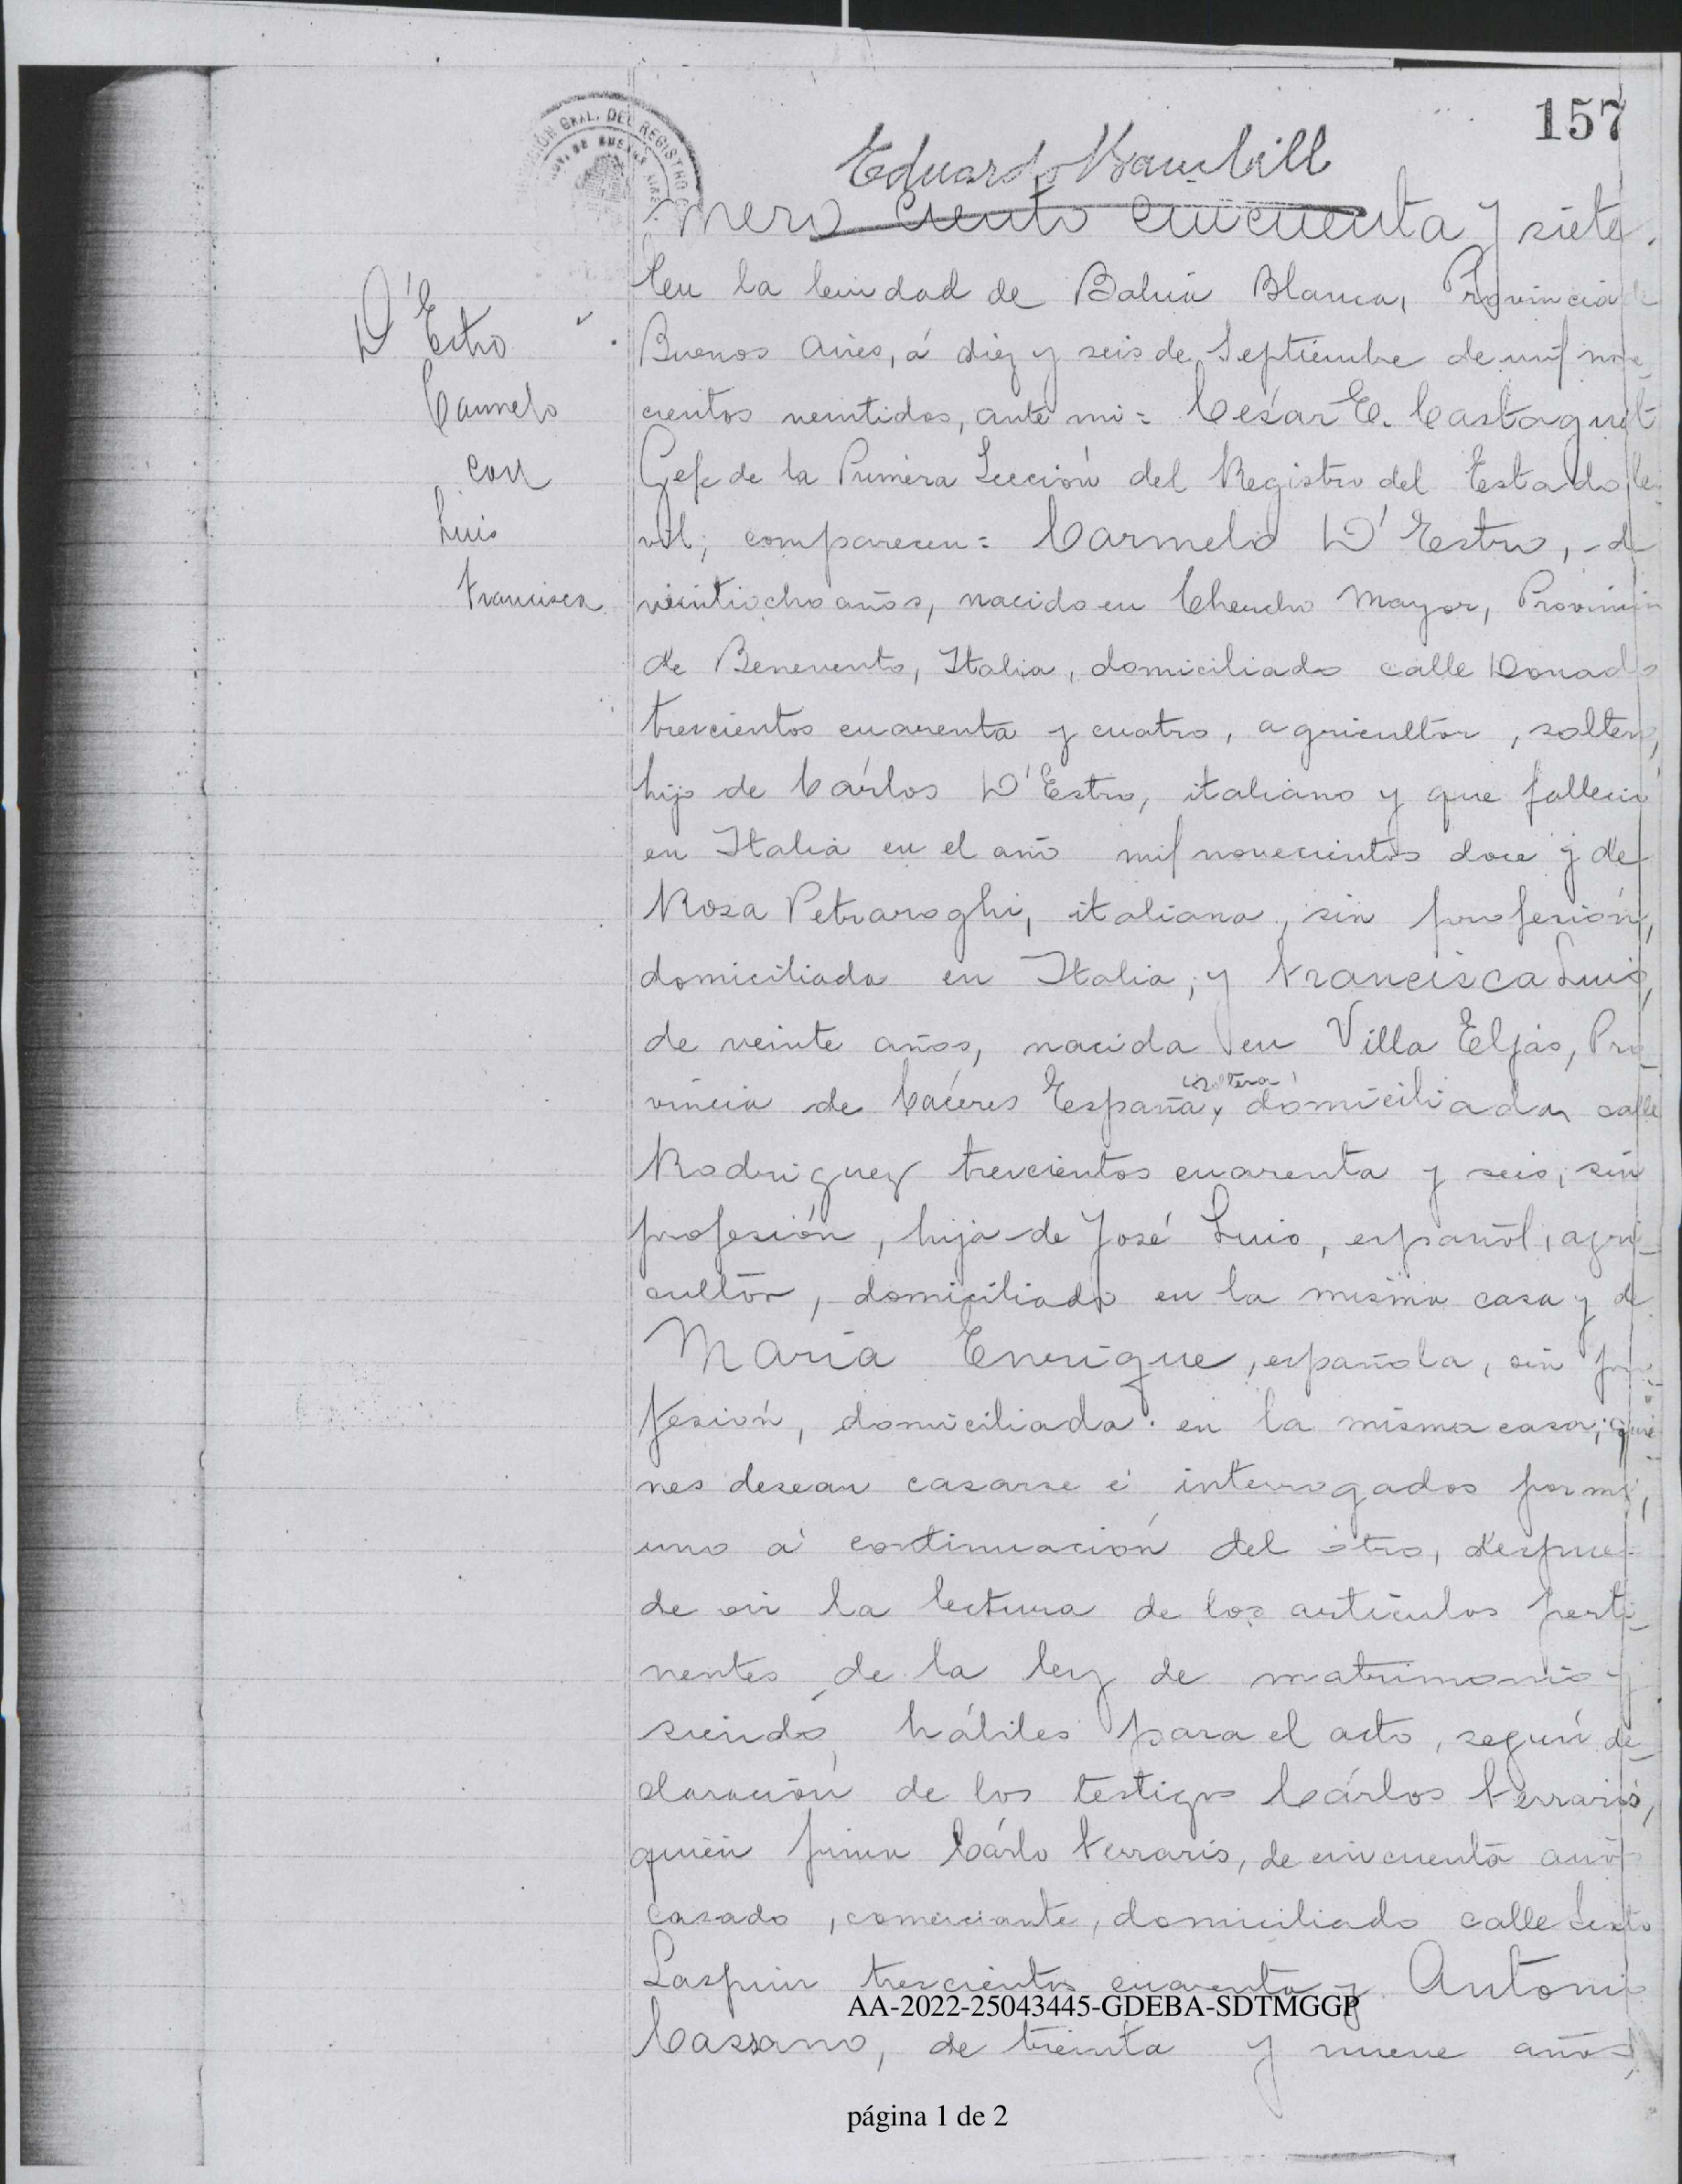 157
CIÓN GRAL. DEL REGISTRO
Eduardo
mero ciento cincuenta y siete.
En la Ciudad de Bahia Blanca, Provincia de
Buenos Aires, á diez y seis de Septiembre de mil nove_
cientos veintidos, ante mi = César E. Castagnet
Gefe de la Primera Sección del Registro del Estado Ci
vil, comparecen = Carmelo D'Estro, de
veintiocho años, nacido en Mayor, Provincia
de Benevento, Italia, domiciliado calle Donado
trescientos cuarenta y cuatro, agricultor, soltero,
hijo de Cárlos D'Estro, italiano y que falleció
en Italia en el año mil novecientos doce y de
Rosa Petraroghi, italiana, sin profesión,
domiciliada en Italia, y Francisca Luis,
de veinte años, nacida en Villa Eljas, Pro_
vincia de Cáceres España, soltera, domiciliada calle
Rodriguez trescientos cuarenta y seis, sin
profesión, hija de José Luis, español, agri_
cultor, domiciliado en la misma casa y de
Maria Enrique, española, sin pro
fesión, domiciliada en la misma casa; quie
nes desean casarse é interrogados por mi,
uno á continuación del otro, despues
de oir la lectura de los articulos perti_
nentes de la ley de matrimonio y
siendo hábiles para el acto, según de_
claración de los testigos Cárlos Ferraris,
quien firma Cárlo Ferraris, de cincuenta años
casado, comerciante, domiciliado calle Sixto
Laspiur trescientos cuarenta y Antonio
Cassano, de treinta y nueve años,
D'Estro
Carmelo
con
Luis
Francisca
AA-2022-25043445-GDEBA-SDTMGGP
página 1 de 2